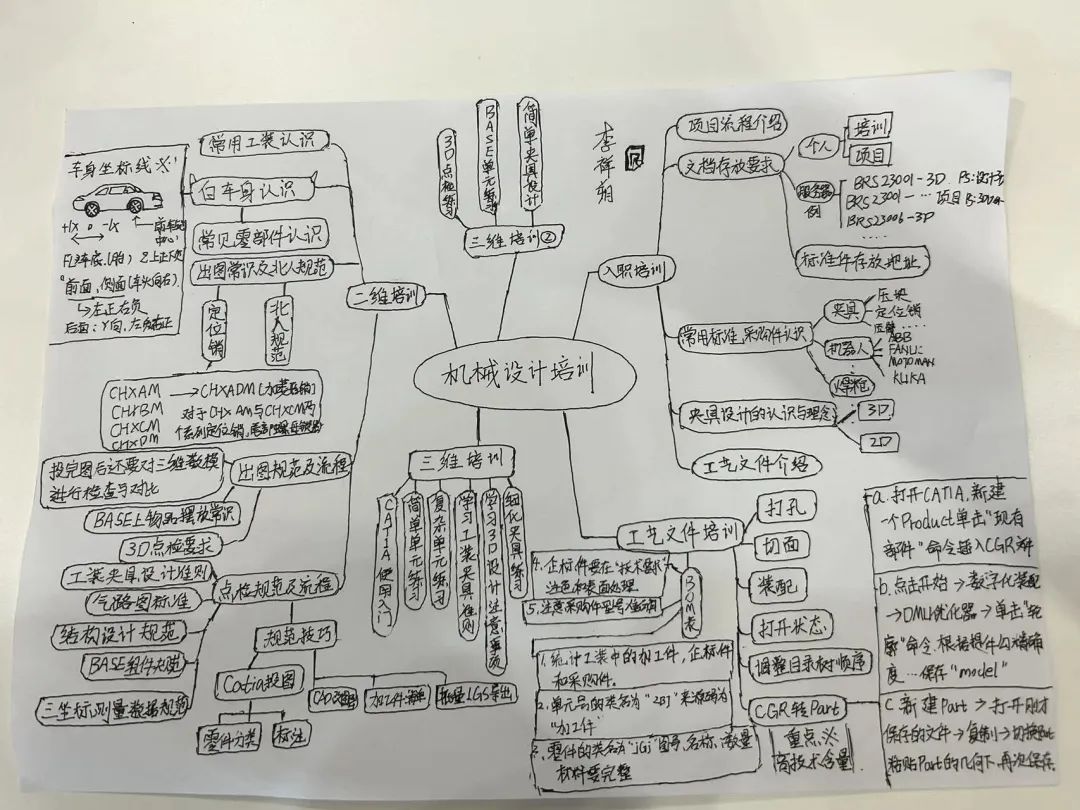 机械设计培训
李祥朔
入职培训
项目流程介绍
文档存放要求
个人
培训
项目
服务器
例
BRS23001-3D
BRS23001-…项目
BRS23006-3D
……
标准件存放地址
常用标准、采购件认识
夹具
压块
定位销
……
机器人
ABB
FANUC
MOTOMAN
KUKA
焊枪
夹具设计的认识与理念
3D
2D
工艺文件介绍
工艺文件培训
打孔
切面
装配
打开状态
调整目录树顺序
CGR转Part
重点※
高技术含量
a.打开CATIA,新建
一个Product单击"现有
部件"命令插入CGR文件
b.点击开始→数字化装配
→DMU优化器→单击"轮
廓"命令.根据提件勾精确
度…保存"model"
C 新建Part→打开刚才
保存的文件→复制→切换Part
粘贴Part的几何下,再次保存.
BOM表
1.统计工装中的加工件,企标件
和采购件.
2.单元号的类名为"ZBJ"来源码为
"加工件"
3.零件的类名为"JGJ"图号、名称、数量
材料要完整
4.企标件要在"技术要求"
注色和表面处理.
5.注意采购件型号准确
三维培训
CATIA使用入门
简单单元练习
复杂单元练习
学习工装夹具准则
学习3D设计注意事项
细化夹具练习
三维培训②
3D点检练习
BASE单元练习
简单夹具设计
二维培训
常用工装认识
白车身认识
车身坐标线※!
+X 0 -X
前车轮
中心
"前面,侧面(车头向右).
↳左正右负
后面:Y向,左负右正
常见零部件认识
出图常识及北人规范
定位销
北人规范
CHXAM →CHXADM(加菱形销)
CHXBM 对于CHXAM与CHXCM两
CHXCM 个系列定位销,尾部螺母锁紧
CHXDM
出图规范及流程
投完图后还要对三维数模
进行检查与对比
BASE上物品摆放常识
3D点检要求
点检规范及流程
工装夹具设计准则
气路图标准
结构设计规范
BASE组件规范
三坐标测量数据规范
规范技巧
Catia投图
零件分类
标注
CAD改图
加工件清单
批量IGS导出